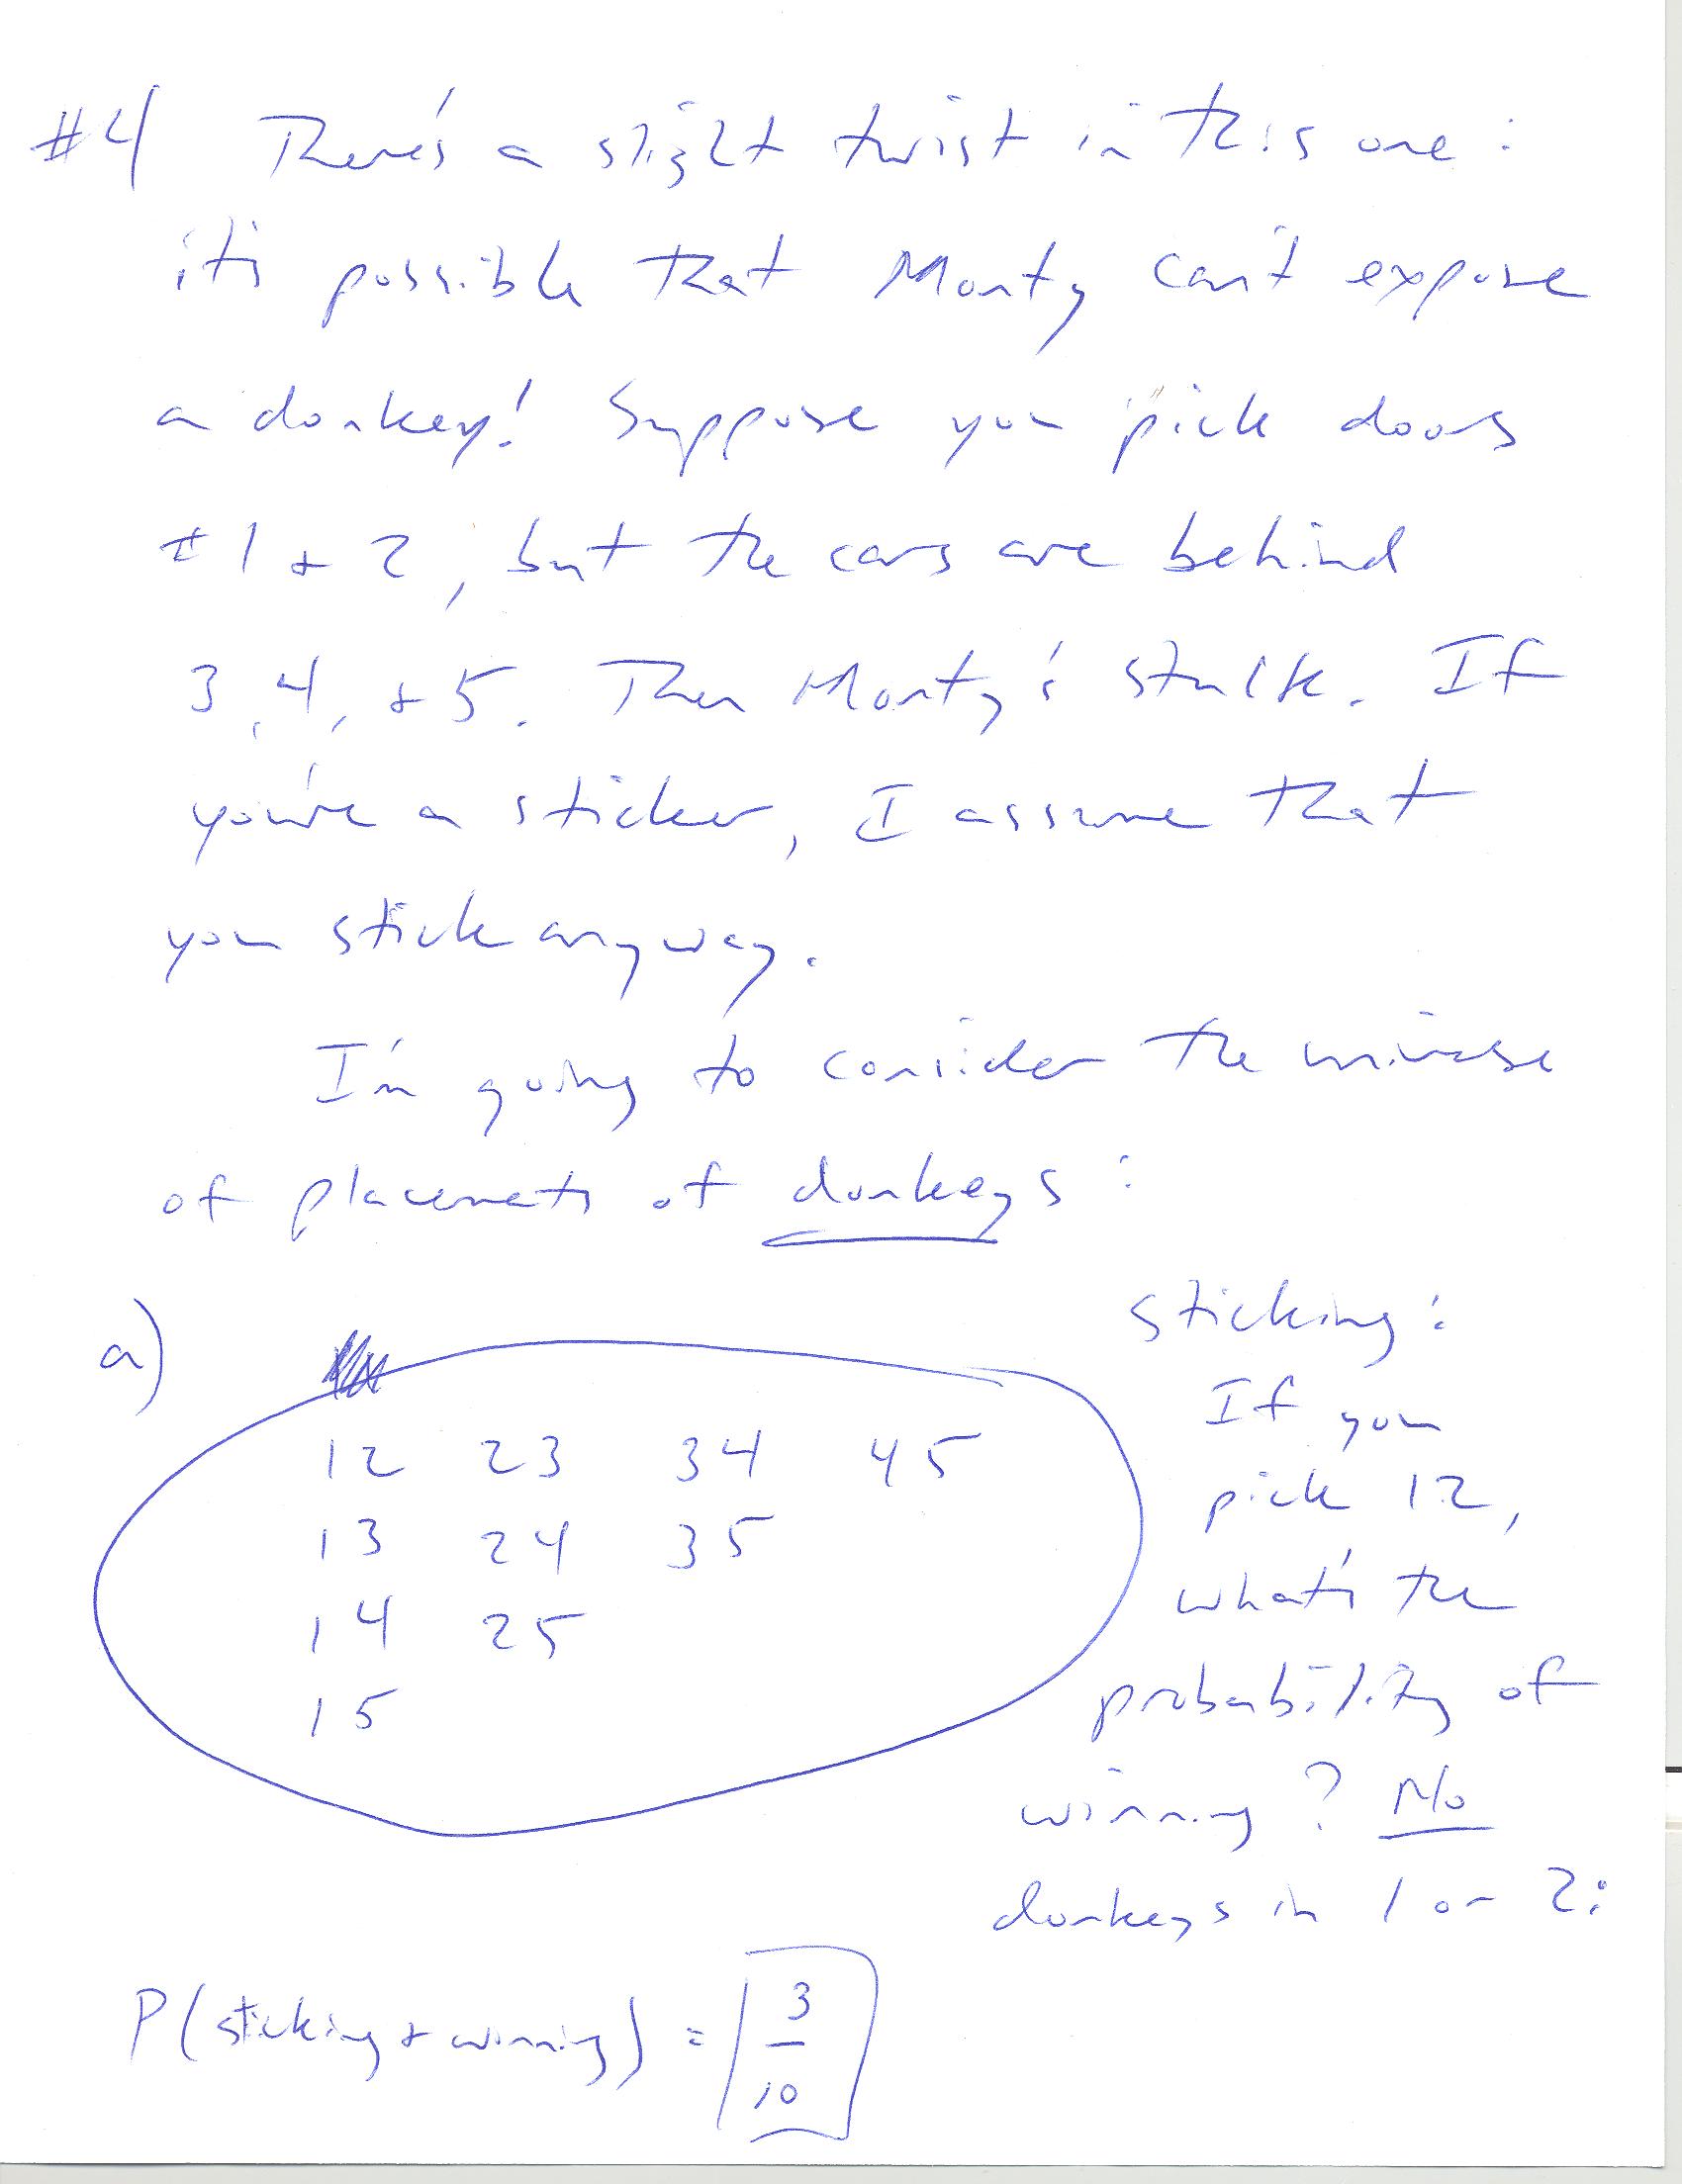 #4 There's a slight twist in this one:
it's possible that Monty can't expose
a donkey! Suppose you pick doors
#1 + 2, but the cars are behind
3, 4, + 5. Then Monty's stuck. If
you're a sticker, I assume that
you stick anyway.
I'm going to consider the universe
of placements of donkeys:
a)
12 23 34 45
13 24 35
14 25
15
sticking:
If you
pick 12,
what's the
probability of
winning? No
donkeys in 1 or 2:
P(sticking + winning) = 3/10